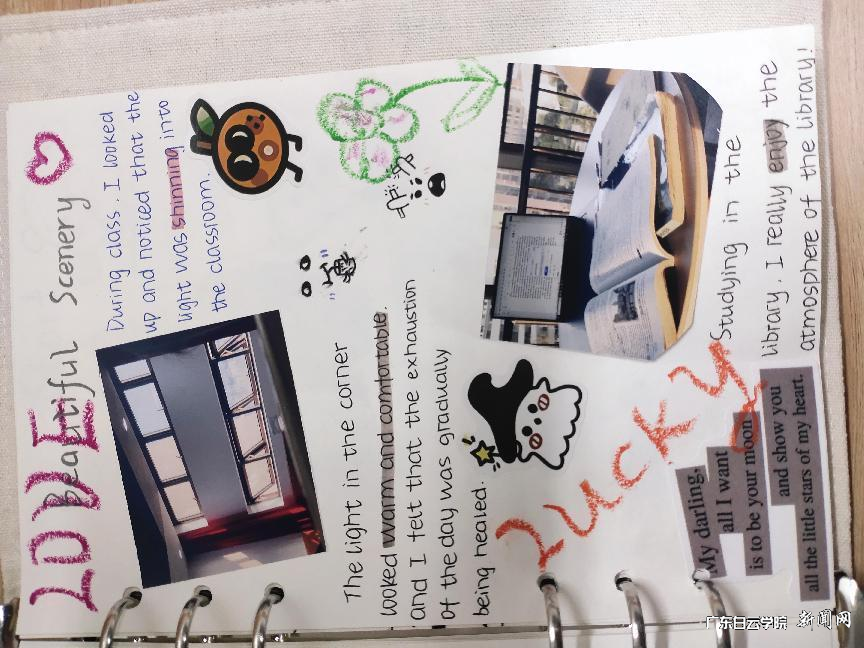 LOVE
Beautiful Scenery
During class. I looked
up and noticed that the
light was shinning into
the classroom.
The light in the corner
looked warm and comfortable.
and I felt that the exhaustion
of the day was gradually
being healed.
Lucky
Studying in the
library. I really enjoy the
atmosphere of the library!
My darling,
all I want
is to be your moon
and show you
all the little stars of my heart.
广东白云学院 新闻网